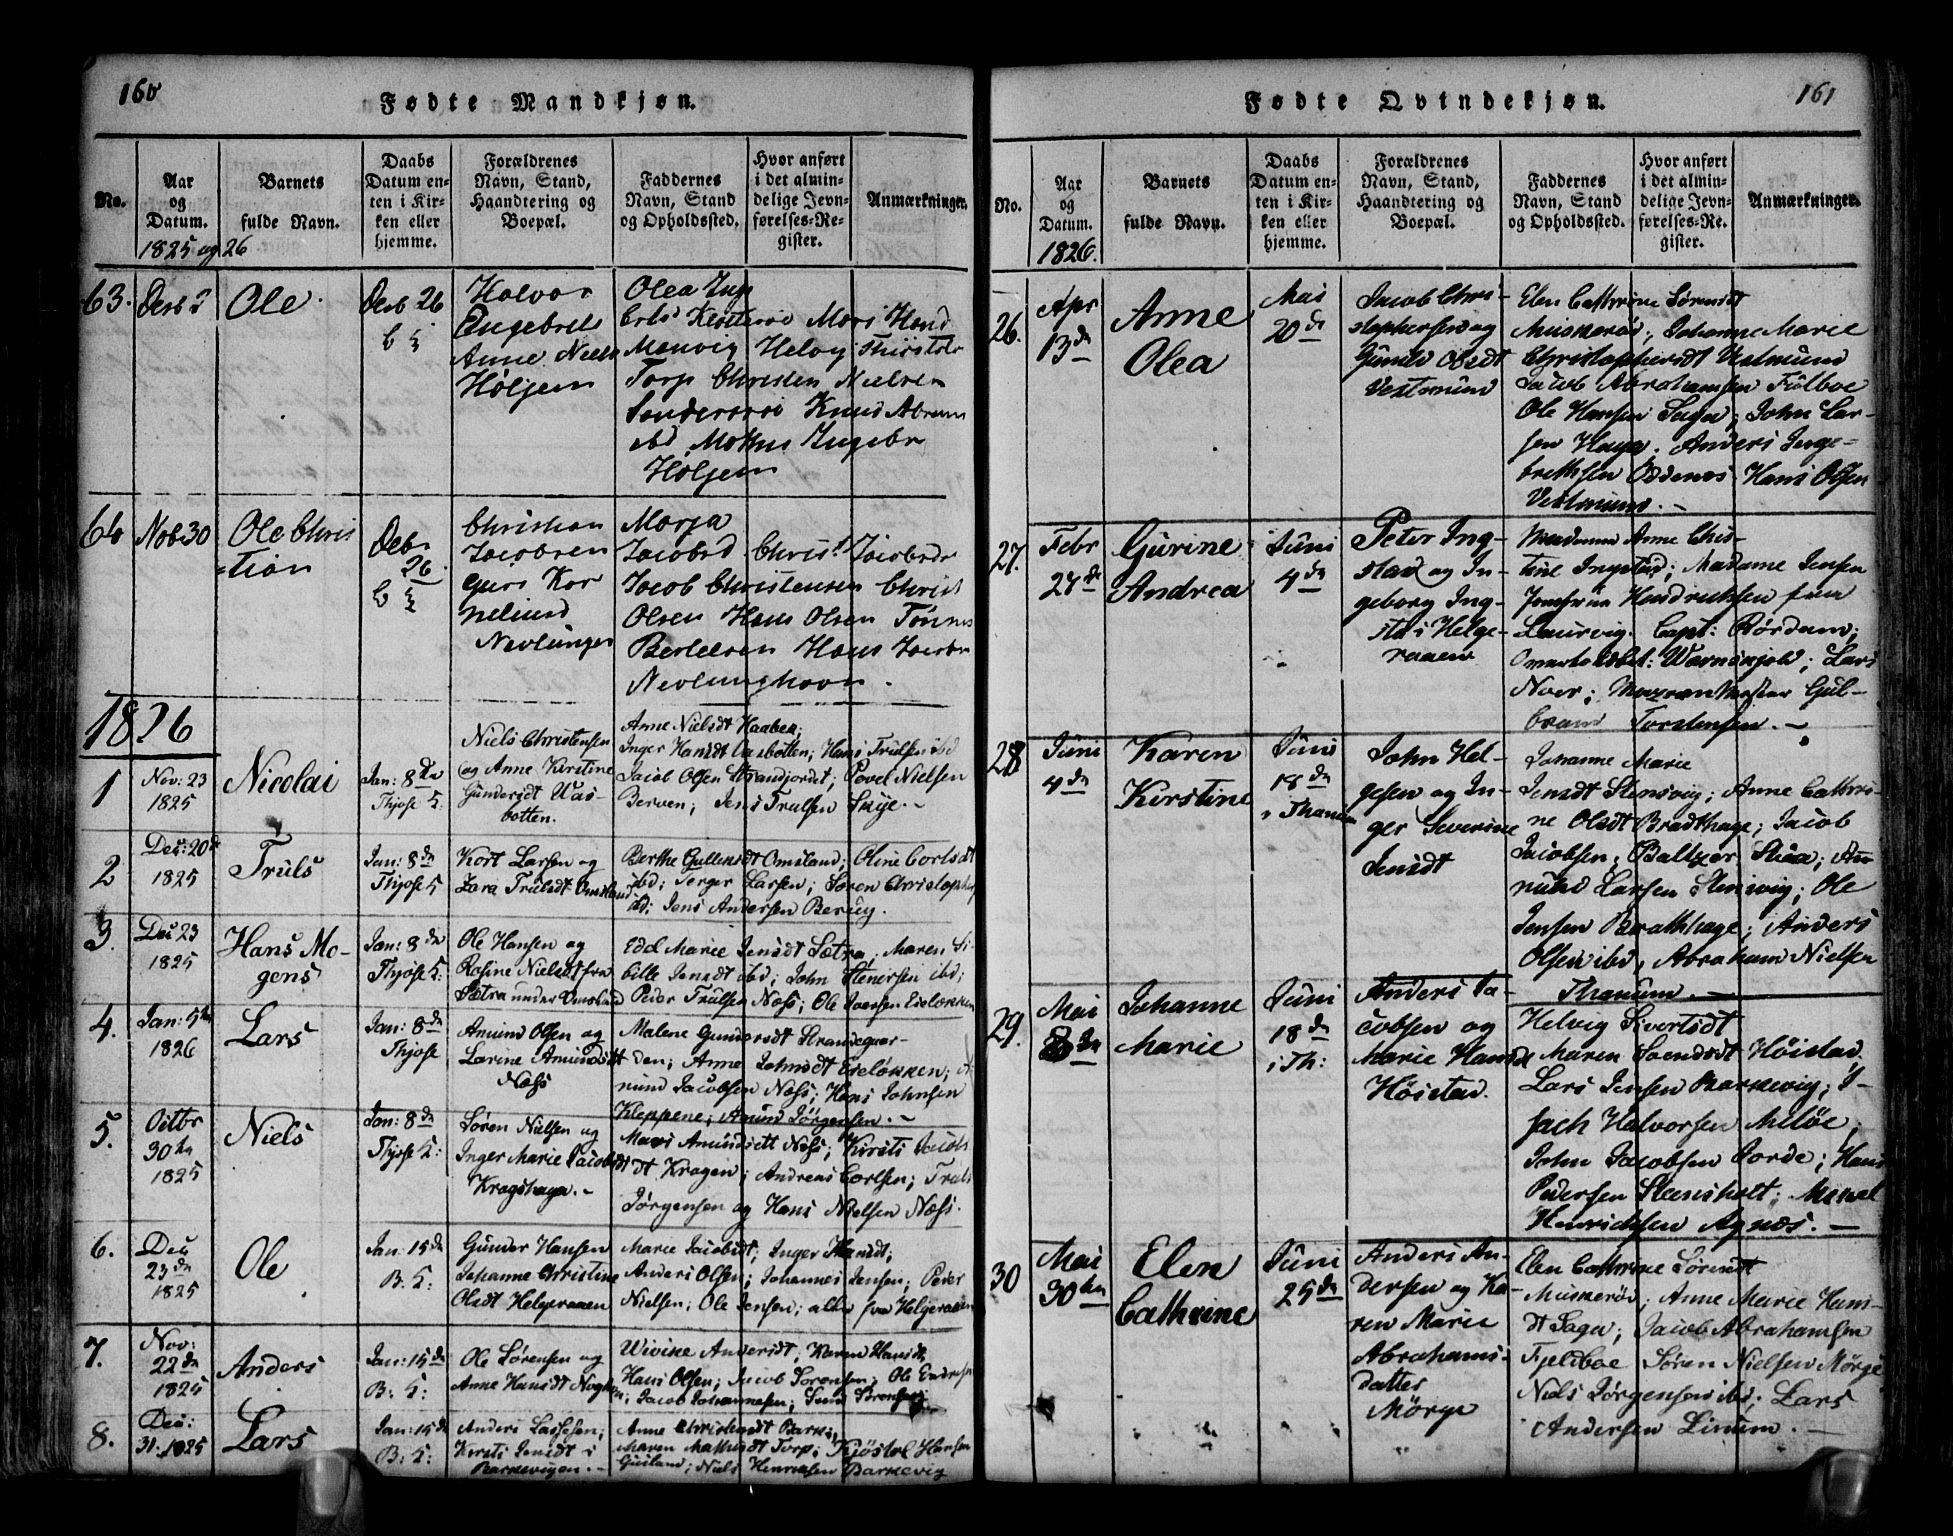 160
Fødte Mandkjøn.
No.
Aar
og
Datum.
1825 og 26
Barnets
fulde Navn.
Daabs
Datum en-
ten i Kir-
ken eller
hjemme.
Forældrenes
Navn, Stand,
Haandtering og
Boepæl.
Faddernes
Navn, Stand
og Opholdssted.
Hvor anført
i det almin-
delige Jevn-
førelses-Re-
gister.
Anmærkninger.
63.
Ole
Decb 26
Halvor
Engebrets
Anne Niels
Holjem
Olea Ing
Torp Christen Nielsen
Knud Abram
ibd Mathis Ingebr
Holjem
Nob 30
Ole Chris
=tian
Debr
26
Christian
Jacobsen
Kor
neliusd
Nevlungen
Marja
Jacobsd Christ Jacobsdr
Jacob Christensen Christ
Olsen Hans Olsen Tønnes
Bertelsen Hans Jacobs
Nevlunghavn.
1826
1
Nov: 23
1825
Nicolai
Jan: 8de
Thjose K:
Niels Christensen
og Anne Kirstine
Gundersdt Was-
botten.
Anne Nielsdt Haaben;
Inger Hansdt Vasbotten; Hans Trulsen ibd
Jacob Olsen Strandjordet; Povel Nielsen
Berven; Jens Trulsen Skye.-
2
Dec: 20de
1825
Truls
Jan: 8de
Thjose K
Kort Larsen og
Zara Trulsdt Omsland
Berthe Gullensdt Omsland; Oline Cortsdt
ibd; Jerger Larsen; Søren Christophers
ibd; Jens Andersen Berug.
3.
Dec 23
1825
Hans Mo-
gens
Jan: 8de
Thjose K:
Ole Hansen og
Rosine Nielsdt fra
Sætra under Omsland
Edel Marie Jensdt Sætra; Maren Si
bille Jensdt ibd; John Stenersen ibd;
Peder Trulsen Næss; Ole Iversen Eseløkken
4.
Jan: 5te
1826
Lars
Jan: 8de
Thjose
Amund Olsen og
Larine Amundsdt
Næss
Malene Gundersdt Strandegaar-
den; Anne Johnsdt Eseløkken; A
mund Jacobsen Næss; Hans Johnsen
Kleppene; Amund Jørgensen.-
5.
Octbr
30te
1825
Niels
Jan: 8de
Thjose K:
Søren Nielsen og
Inger Marie Jacobsdt
Kragshage.-
Mari Amundsdtt Næss; Kirsti Jacobs
dt Kragen; Andreas Carlsen; Truls
Jørgensen og Hans Nielsen Næss.
6.
Dec
23de
1825
Ole
Jan: 15de
B. K:
Gunder Hansen
Johanne Christine
Olsdt Helgeraaen
Marie Jacobsdt; Inger Hansdt;
Anders Olsen; Johannes Jensen; Peder
Nielsen; Ole Jensen; alle fra Helgeraaen
7.
Nov:
22de
1825
Anders
Jan: 15de
B: K:
Ole Sørensen og
Anne Hansdt
Wivike Andersdt; Karen Hansdt,
Hans Olsen; Jacob Sørensen; Ole
Jacob Johannesen;
8.
Dec:
31. 1825
Lars
Jan: 15de
B: K:
Anders Lassesen;
Kirsti Jensdt i
Barkevigen.-
Anne Christensdt Barke;
Maren Mathisdt Torp; Kjøstel Hansen
Guslund; Niels Henriksen Barkevig
161
Fødte Qvindekjøn.
No.
Aar
og
Datum.
1826.
Barnets
fulde Navn.
Daabs
Datum en-
ten i Kir-
ken eller
hjemme.
Forældrenes
Navn, Stand,
Haandtering og
Boepæl.
Faddernes
Navn, Stand
og Opholdssted.
Hvor anført
i det almin-
delige Jevn-
førelses-Re-
gister.
Anmærkninger.
26.
Apr
13de
Anne
Olea
Mai
20de
Jacob Chri-
stophersen og
Gunild Olsdt
Vestmund
Elen Cathrine Sørensdt
Muskerøi; Johanne Marie
Christophersdt Vestmund
Jacob Abrahamsen Fölboe
Ole Hansen Saga; John Lar-
sen Haga; Anders Inge-
brethsen Oddenes Hans Olsen
Vestmund.-
27.
Febr
27de
Gurine
Andrea
Juni
4de
Peter Ing-
stad og In-
geborg Ing-
stad i Helge-
raaen
Madame Anne Chri-
stine Ingstad; Madame Jensen
Jomfrue Hendriksen fra
Laurvig. Capt: Rørdam;
Wærnskjold; Lars
Noer; Gul-
brand Torstensen.-
28
Juni
4de
Karen
Kirstine
Juni
18de
i Thanum
John Hel-
gesen og In-
ger Severine
Jensdt
Johanne Marie
Jensdt Stensvig; Anne Cathri-
ne Olsdt Bradthage; Jacob
Jacobsen; Baltzer Skaa; An
mund Larsen Stensvig; Ole
Jensen Brathhage; Anders
Olsen ibd, Abraham Nielsen
Thanum.-
29.
Mai
Johanne
Marie
Juni
18de
i Th:
Anders Ja-
cobsen og
Marie Hansdt
Høistad.
Helvig Sivertsdt
Maren Svendsdt Høistad.
Lars Jensen Barkevig; I-
sach Halvorsen Meløe;
John Jacobsen Jorde; Hans
Pedersen Steensholt; Manel
Henrichsen Agnæs.-
30
Mai
30te
Elen
Cathrine
Juni
25de
Anders An-
dersen og Ka-
ren Marie
Abrahams-
datter
Mörge
Elen Cathrine Sörensdt
Muskerøi; Anne Marie Hans-
dt Saga; Jacob Abrahamsen
Fjeldboe Søren Nielsen Mörge
Niels Jørgensen ibd; Lars
Andersen Linum.-